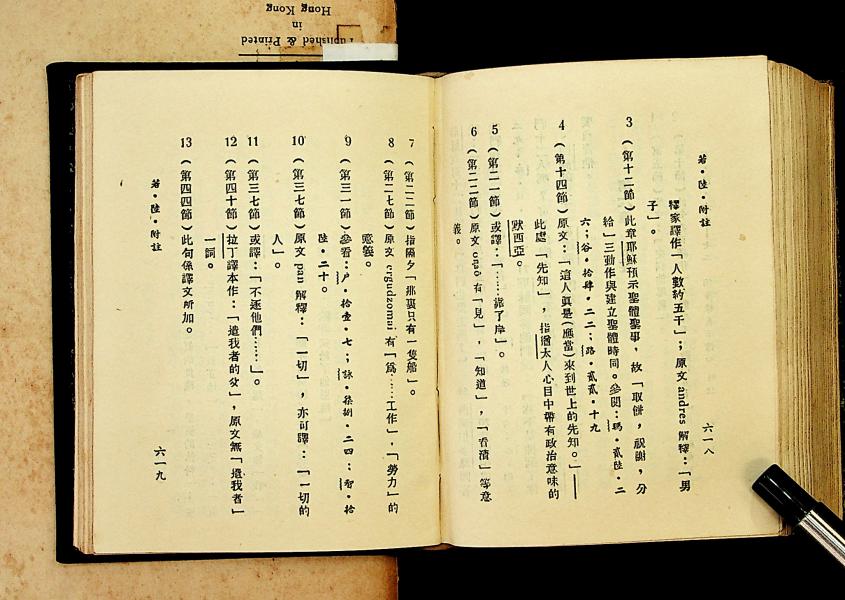 若•陸•附註
釋家譯作「人數約五千」；原文 andres 解釋：「男
子」。
3（第十二節）此章耶穌預示聖體聖事，故「取餅，祝謝，分
給」三動作與建立聖體時同。參閱：瑪•貳陸•二
六；谷•拾肆•二二；路•貳貳•十九
4（第十四節）原文：「這人眞是(應當)來到世上的先知。」——
此處「先知」，指猶太人心目中帶有政治意味的
默西亞。
5（第二一節）或譯：「……靠了岸」。
6（第二二節）原文 opao 有「見」，「知道」，「看清」等意
義。
六一八
7（第二二節）指隔夕「那裏只有一隻船」。
8（第二七節）原文 ergadzomai 有「爲……工作」，「勞力」的
意義。
9（第三一節）參看：户•拾壹•七；詠•柒捌•二四；智•拾
陸•二十。
10（第三七節）原文 pan 解釋：「一切」，亦可譯：「一切的
人」。
11（第三七節）或譯：「不逐他們……」。
12（第四十節）拉丁譯本作：「遣我者的父」，原文無「遣我者」
一詞。
13（第四四節）此句係譯文所加。
若•陸•附註
六一九
Published & Printed
in
Hong Kong